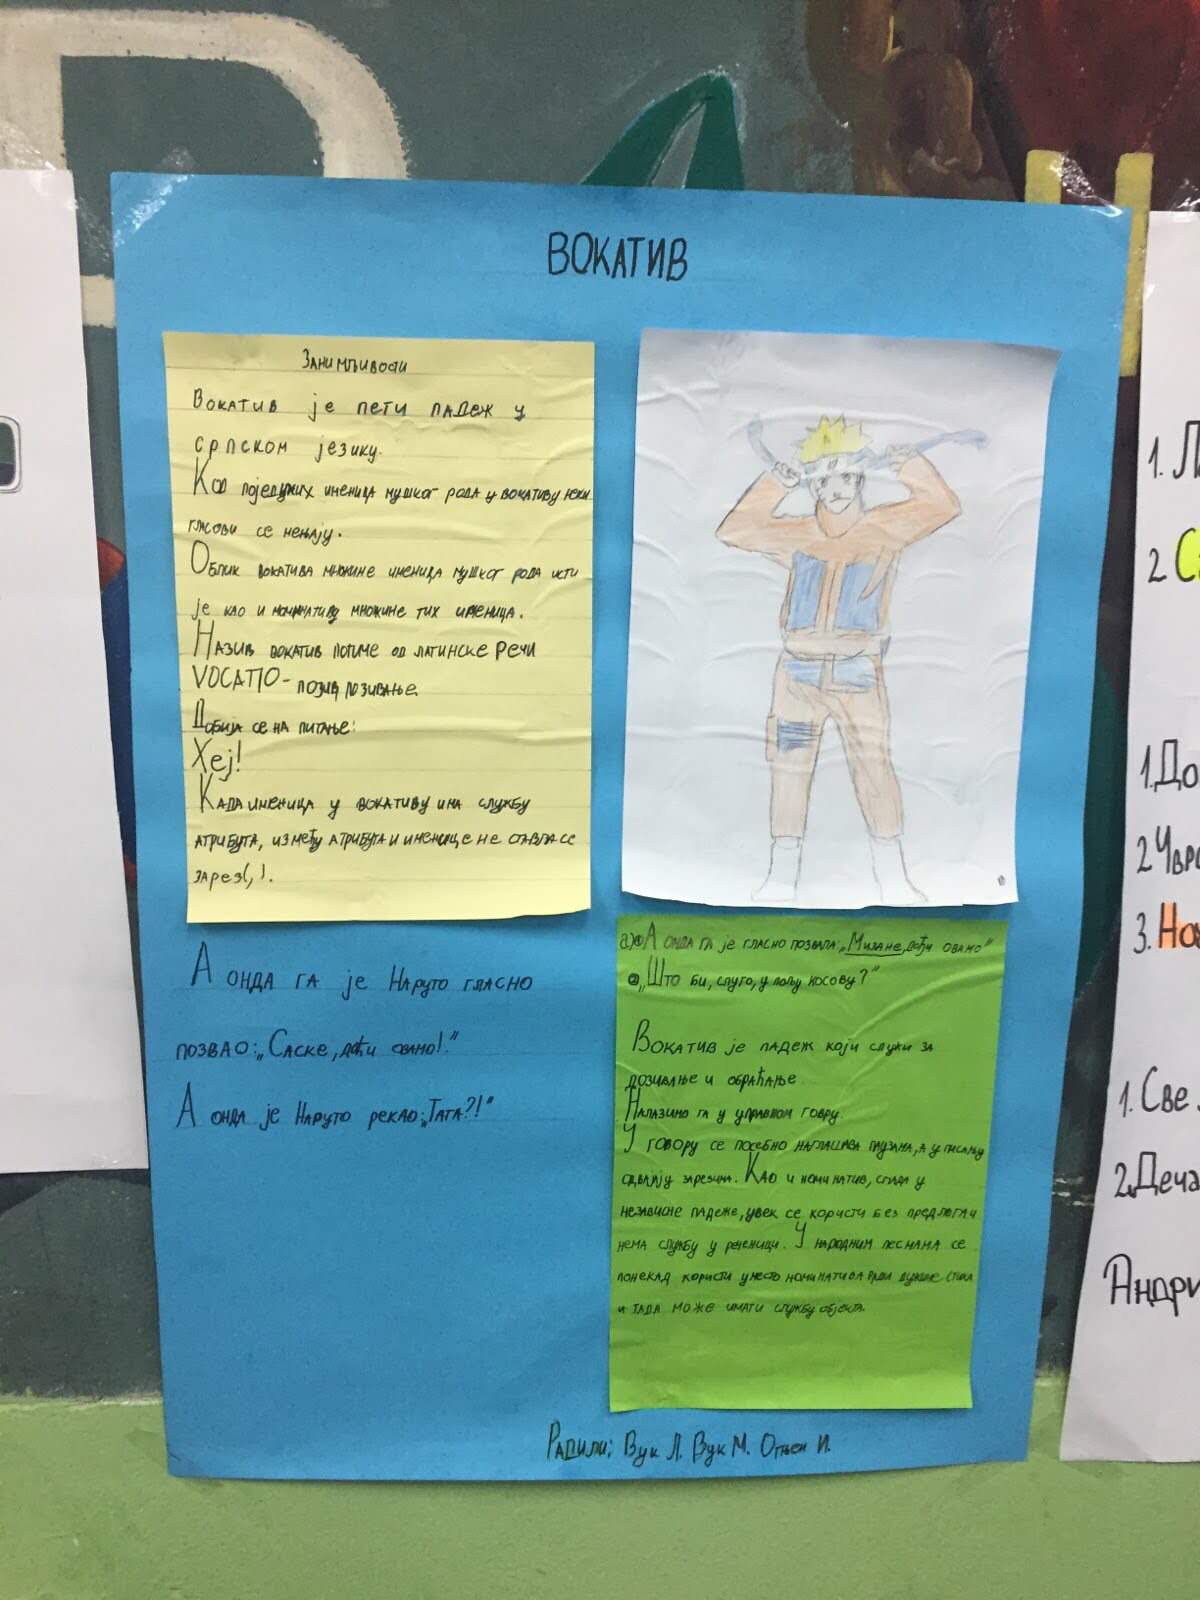 ВОКАТИВ
Занимљивости
Вокатив је пети падеж у
српском језику.
Код појединих именица мушког рода у вокативу неки
гласови се мењају.
Облик вокатива множине именица мушког рода исти
је као и номинативу множине тих именица.
Назив вокатив потиче од латинске речи
VOCATIO - позив, позивање.
Добија се на питање:
Хеј!
Када именица у вокативу има службу
атрибута, између атрибута и именице не ставља се
зарез(,).
А онда га је Наруто гласно
позвао: „Саске, дођи овамо!"
А онда је Наруто рекао: „Тата?!"
а) А онда га је гласно позвала: „Милане, дођи овамо"
„Што би, слуго, у пољу Косову?"
Вокатив је падеж који служи за
дозивање и обраћање.
Налазимо га у управном говру.
У говору се посебно наглашава паузама, а у писању
одвајају зарезима. Као и номинатив, спада у
независне падеже, увек се користи без предлога и
нема службу у реченици. У народним песмама се
понекад користи уместо номинатива ради дужине стиха
и тада може имати службу објекта.
Радили: Вук Л. Вук М. Огњен И.
1. Л
2 С
1. До
2 Чврс
3. Но
1. Све
2. Деча
Андри